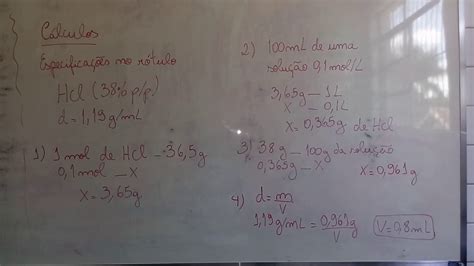 Cálculos
Especificações no rótulo
HCl (38% p/p)
d = 1,19 g/mL
1) 1 mol de HCl — 36,5g
0,1 mol — X
X = 3,65g
2) 100mL de uma
solução 0,1 mol/L
3,65g — 1L
X — 0,1L
X = 0,365g de HCl
3) 38g — 100g da solução
0,365g — X X = 0,961g
4) d = m/V
1,19 g/mL = 0,961g/V V = 0,8mL